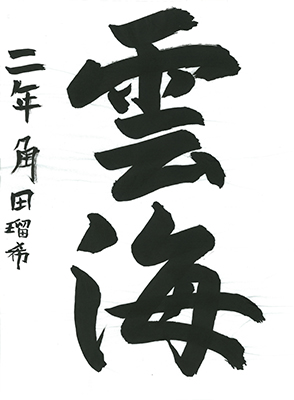 雲海
二年 角田瑠希